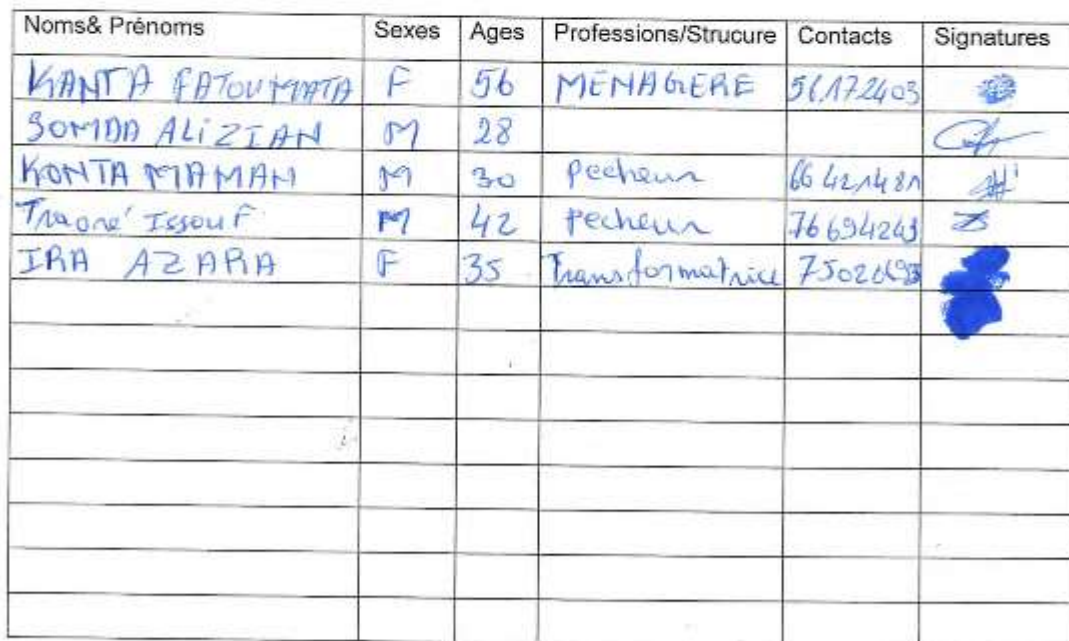 Noms& Prénoms Sexes Ages Professions/Strucure Contacts Signatures
KANTA FATOUMATA F 56 MENAGERE 56172403
SOMDA ALIZIAN M 28
KONTA MAMAN M 30 pecheur 66421481
Traoré Issouf M 42 Pecheur 76694243
IRA AZARA F 35 Transformatrice